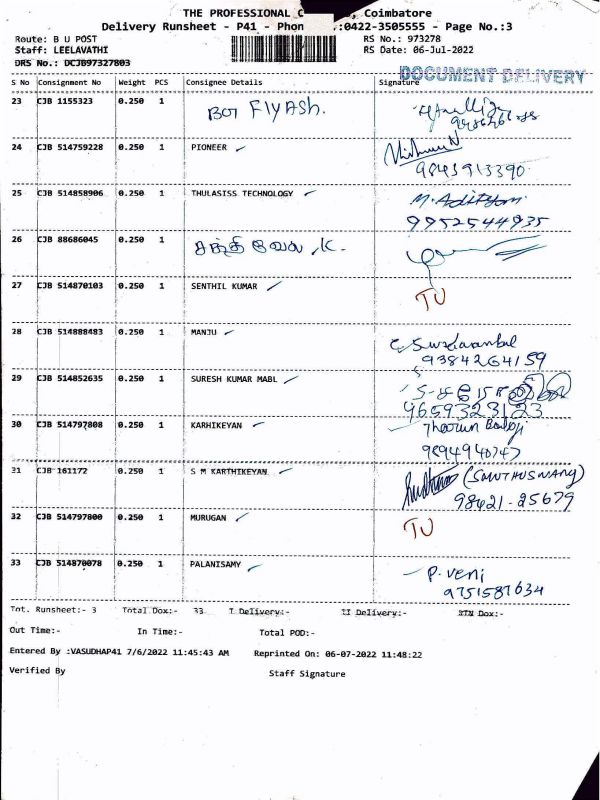 THE PROFESSIONAL C , Coimbatore
Delivery Runsheet - P41 - Phon :0422-3505555 - Page No.:3
Route: B U POST RS No.: 973278
Staff: LEELAVATHI RS Date: 06-Jul-2022
DRS No.: DCJB97327803
DOCUMENT DELIVERY
S No Consignment No Weight PCS Consignee Details Signature
23 CJB 1155323 0.250 1 BOT FlyASh.
24 CJB 514759228 0.250 1 PIONEER
9843913390
25 CJB 514858906 0.250 1 THULASISS TECHNOLOGY M. Adityan
9952544935
26 CJB 88686045 0.250 1 K.
27 CJB 514870103 0.250 1 SENTHIL KUMAR TU
28 CJB 514888483 0.250 1 MANJU
9384264159
29 CJB 514852635 0.250 1 SURESH KUMAR MABL
9659323123
30 CJB 514797808 0.250 1 KARHIKEYAN Tharun Balaji
9894940747
31 CJB 161172 0.250 1 S M KARTHIKEYAN
98421-25679
32 CJB 514797800 0.250 1 MURUGAN TU
33 CJB 514870078 0.250 1 PALANISAMY P. Veni
9751587634
Tot. Runsheet:- 3 Total Dox:- 33 I Delivery:- II Delivery:- RTN Dox:-
Out Time:- In Time:- Total POD:-
Entered By :VASUDHAP41 7/6/2022 11:45:43 AM Reprinted On: 06-07-2022 11:48:22
Verified By Staff Signature